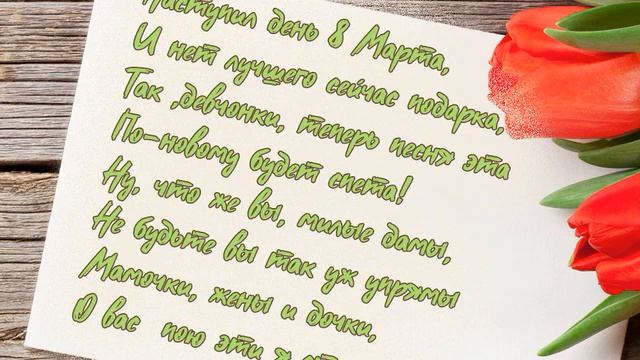 Наступил день 8 Марта,
И нет лучшего сейчас подарка,
Так ,девчонки, теперь песня эта
По-новому будет спета!
Ну, что же вы, милые дамы,
Не будьте вы так уж упрямы
Мамочки, жены и дочки,
О вас пою эти